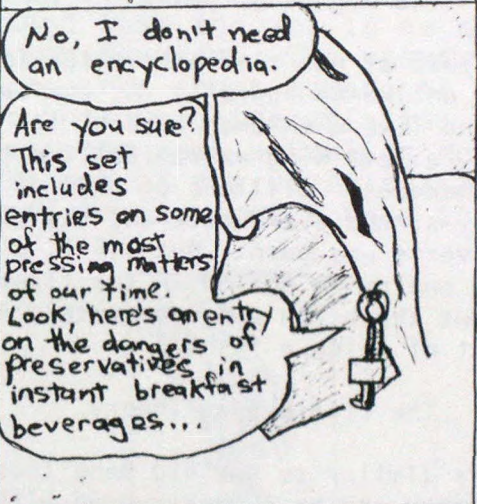 No, I don't need
an encyclopedia.
Are you sure?
This set
includes
entries on some
of the most
pressing matters
of our time.
Look, here's an entry
on the dangers of
preservatives in
instant breakfast
beverages...